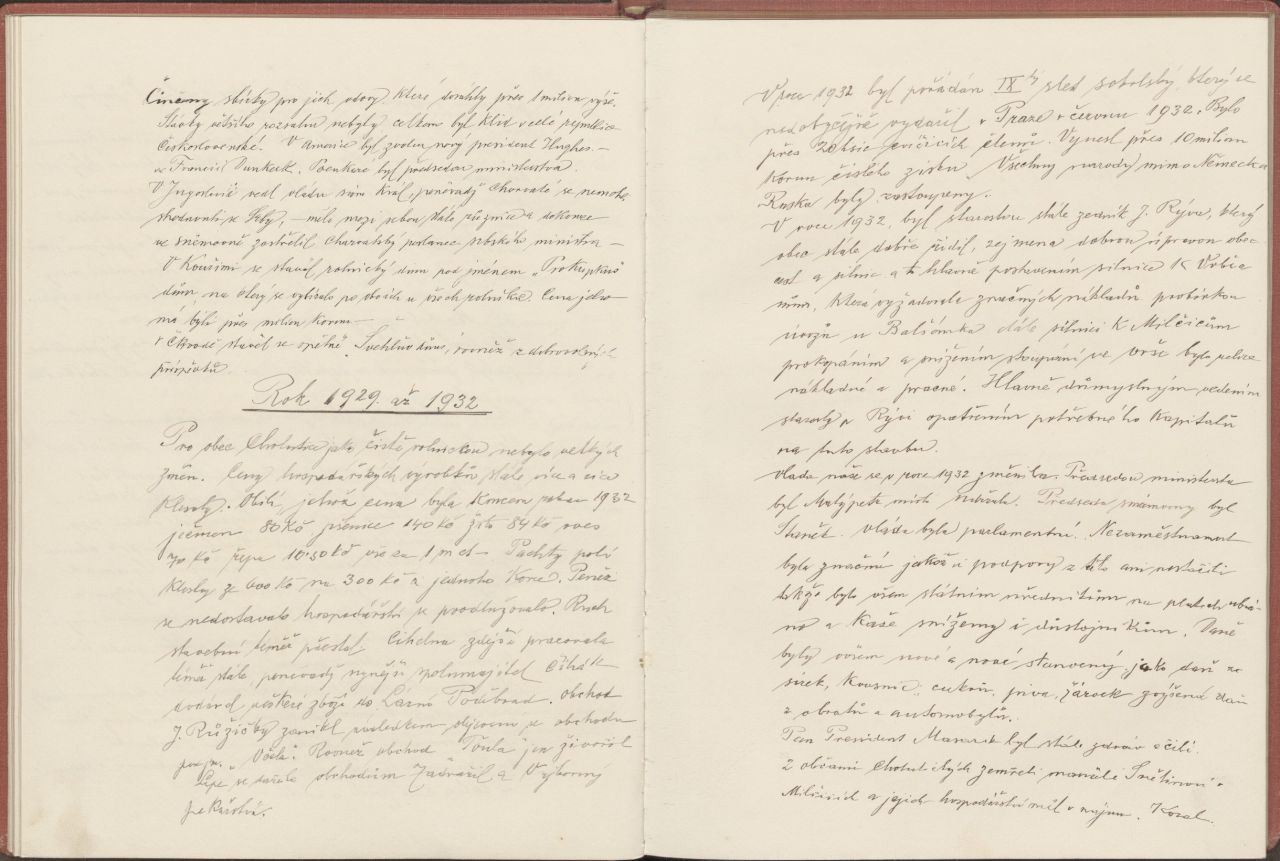 činěny sbírky pro jich vdovy, které dosáhly přes 1 milion výše.
Stávky většího rozsahu nebyly celkem byl klid v celé republice
Československé. V Americe byl zvolen nový president Hughes.—
ve Francii Poinkaré byl předsedou ministerstva.
V Jugoslavii vedl vládu sám král, poněvadž Chorvaté se nemohli
shodnouti se Srby, — měli mezi sebou stále různice a dokonce
ve sněmovně zastřelil charvatský poslanec srbského ministra —
V Kouřimi se stavěl rolnický dům pod jménem „Prokůpkův
dům, na který se vybíralo po obcích u všech rolníků. Cena jeho
má býti přes milion korun —
v stavěl se opětně Švehlův dům, rovněž z dobrovolných
příspěvků.
Rok 1929. až 1932
Pro obec Chotutice jako čistě rolnickou nebylo velkých
změn. Ceny hospodářských výrobků stále více a více
klesaly. Obilí, jehož cena byla koncem roku 1932
ječmen 80 Kč pšenice 140 Kč žito 84 Kč oves
70 Kč řepa 10.50 Kč vše za 1 met — Pachty polí
klesly ze 600 Kč na 300 Kč a jednoho korce. Peněz
se nedostávalo hospodářství se prodlužovalo. Ruch
stavební téměř přestal. Cihelna zdejší pracovala
téměř stále, poněvadž nynější spolumajitel Čihák
dodával veškeré zboží do Lázní Poděbrad. obchod
J. Růžičky zanikl následkem obchodu
„Včela“. Rovněž obchod Toula jen živořil
Lépe se dařilo obchodům Zádražil a Výborný
pekařství.
V roce 1932 byl pořádán IX tý slet sokolský, který se
neobyčejně vydařil v Praze v červnu 1932. Bylo
přes cvičících členů. Vynesl přes 10 milionů
Korun čistého zisku. Všechny národy mimo Německa
Ruska byly zastoupeny.
V roce 1932, byl starostou stále zedník J. Rýva, který
obec stále dobře řídil, zejména dobrou úpravou obec-
ních a silnic a t. hlavně postavením silnice k Vrbča-
nům, která vyžadovala značných nákladů protínkou
úvozu u dále silnici k Milčicům
prokopáním a snížením stoupání ve bylo velice
nákladné a pracné. Hlavně důmyslným vedením
starosty p. Rývi opatřením potřebného kapitálu
na tuto stavbu.
vláda naše se v roce 1932 změnila. Předsedou ministerstva
byl Malýpetr místo Udržala. Předseda sněmovny byl
Staněk. vláda byla parlamentní. Nezaměstnanost
byla značná jakož i podpory z této ani nestačili
takže bylo všem státním úředníkům na platech ubrá-
no a Kaše sníženy i důstojníkům. Daně
byly ovšem nové a nové stanoveny, jako daň ze
sirek, kvasnic, cukru, piva, žárovek zvýšena daň
z obratu a automobylů.
Pan President Masaryk byl stále zdráv a čilí.
Z občanů Chotutických zemřeli manželé v
Milčicích a jejich hospodářství měl v nájmu. Kozel.